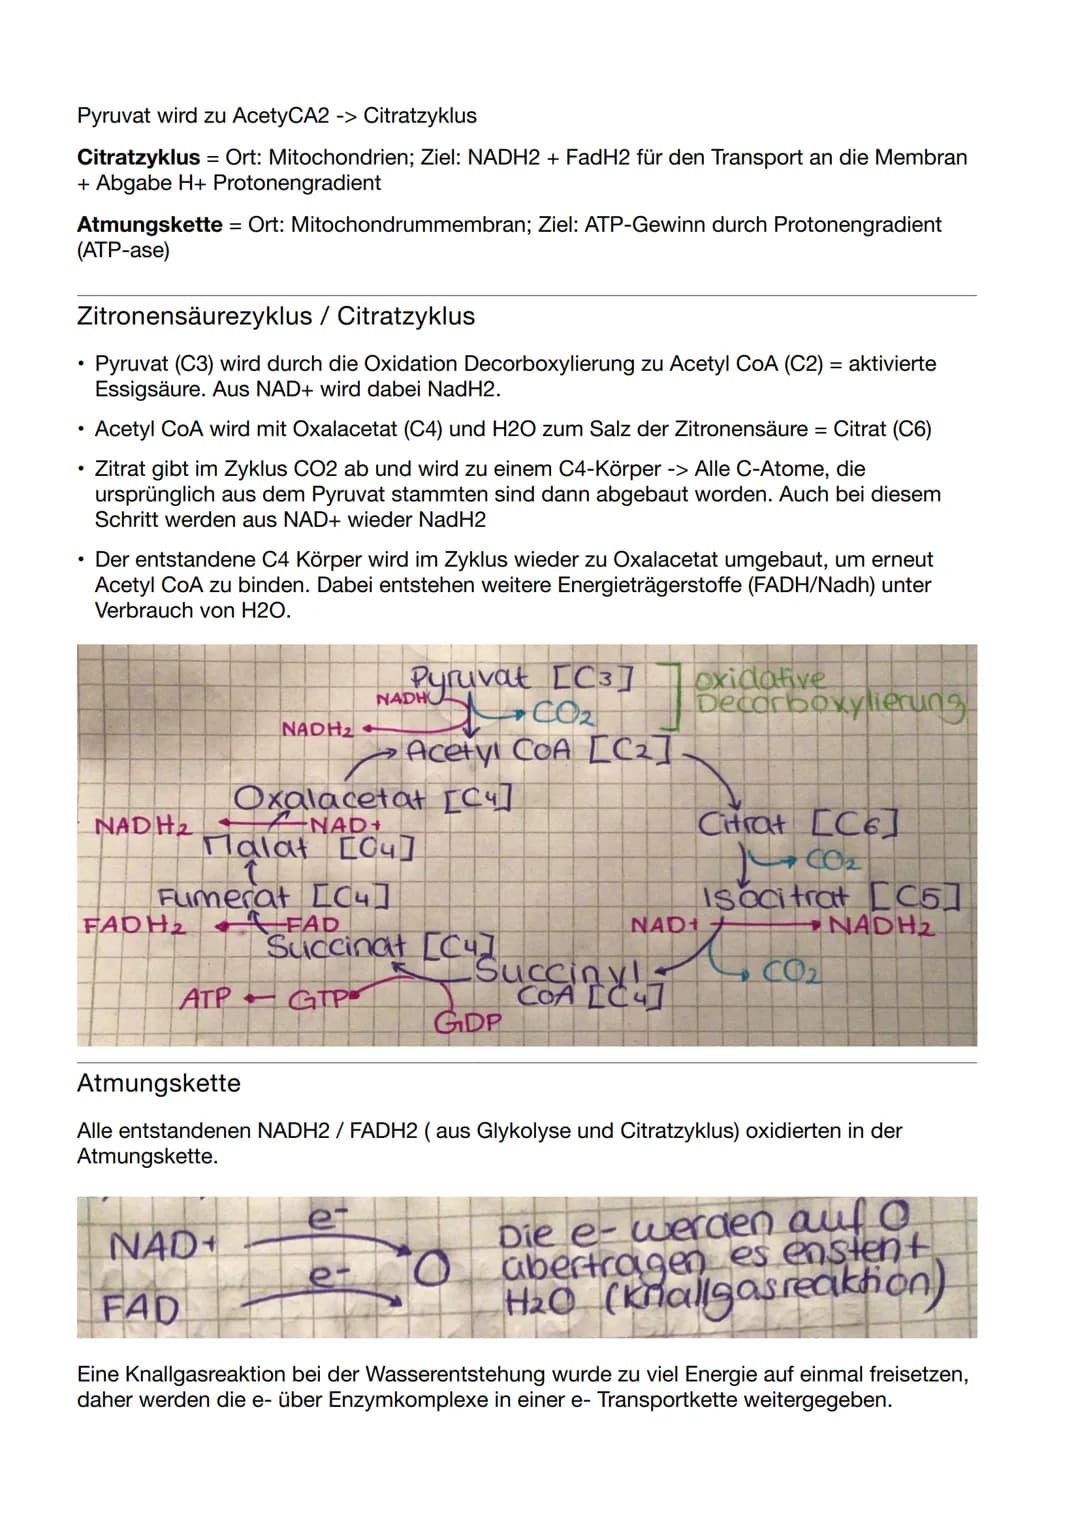 Pyruvat wird zu AcetyCA2 -> Citratzyklus
Citratzyklus = Ort: Mitochondrien; Ziel: NADH2 + FadH2 für den Transport an die Membran
+ Abgabe H+ Protonengradient
Atmungskette = Ort: Mitochondrummembran; Ziel: ATP-Gewinn durch Protonengradient
(ATP-ase)
Zitronensäurezyklus / Citratzyklus
• Pyruvat (C3) wird durch die Oxidation Decorboxylierung zu Acetyl CoA (C2) = aktivierte
Essigsäure. Aus NAD+ wird dabei NadH2.
• Acetyl CoA wird mit Oxalacetat (C4) und H2O zum Salz der Zitronensäure = Citrat (C6)
• Zitrat gibt im Zyklus CO2 ab und wird zu einem C4-Körper -> Alle C-Atome, die
ursprünglich aus dem Pyruvat stammten sind dann abgebaut worden. Auch bei diesem
Schritt werden aus NAD+ wieder NadH2
• Der entstandene C4 Körper wird im Zyklus wieder zu Oxalacetat umgebaut, um erneut
Acetyl CoA zu binden. Dabei entstehen weitere Energieträgerstoffe (FADH/Nadh) unter
Verbrauch von H2O.
Pyruvat [C3] ] oxidative
NADH Decarboxylierung
→ CO2
NADH2 ←
→ Acetyl CoA [C2]
Oxalacetat [C4]
NADH2 ← NAD+ Citrat [C6]
Malat [C4] → CO2
Fumerat [C4] Isocitrat [C5]
FADH2 ← FAD NAD+ → NADH2
Succinat [C4]
Succinyl → CO2
ATP ← GTP CoA [C4]
GDP
Atmungskette
Alle entstandenen NADH2 / FADH2 ( aus Glykolyse und Citratzyklus) oxidierten in der
Atmungskette.
e- Die e- werden auf O
NAD+ übertragen es enstent
e- O H2O (Knallgasreaktion)
FAD
Eine Knallgasreaktion bei der Wasserentstehung wurde zu viel Energie auf einmal freisetzen,
daher werden die e- über Enzymkomplexe in einer e- Transportkette weitergegeben.